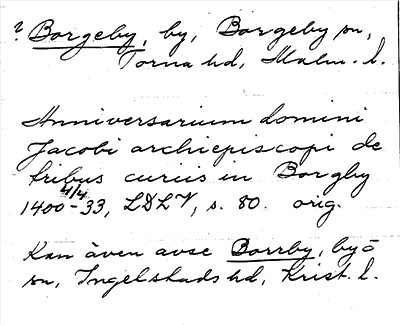 ? Borgeby, by, Borgeby sn,
Torna hd, Malm. l.
Anniversarium domini
Jacobi archiepiscopi de
tribus curiis in Borgby
1400 4/4 -33, LDLV, s. 80. orig.
Kan även avse Borrby, by o
sn, Ingelstads hd, Krist. l.